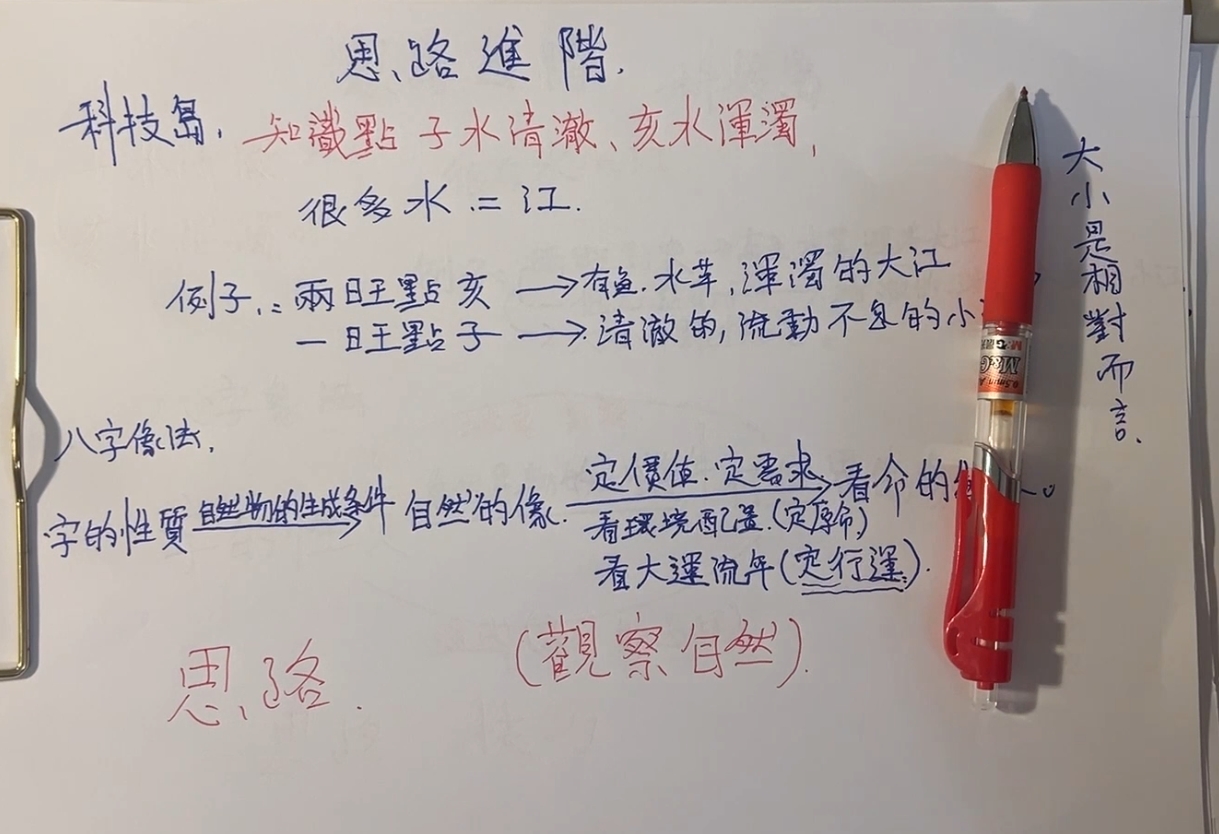 思路進階.
科技島. 知識點 子水清澈、亥水渾濁,
很多水 = 江.
例子: 兩旺點亥 → 有魚.水草,渾濁的大江
一旺點子 → 清澈的,流動不息的小
大小是相對而言.
八字像法.
字的性質 自然物的生成条件 自然的像. 定價值.定需求. 看命的
看環境配置.(定原命)
看大運流年(定行運).
思路.
(觀察自然).
M&G
0.5mm